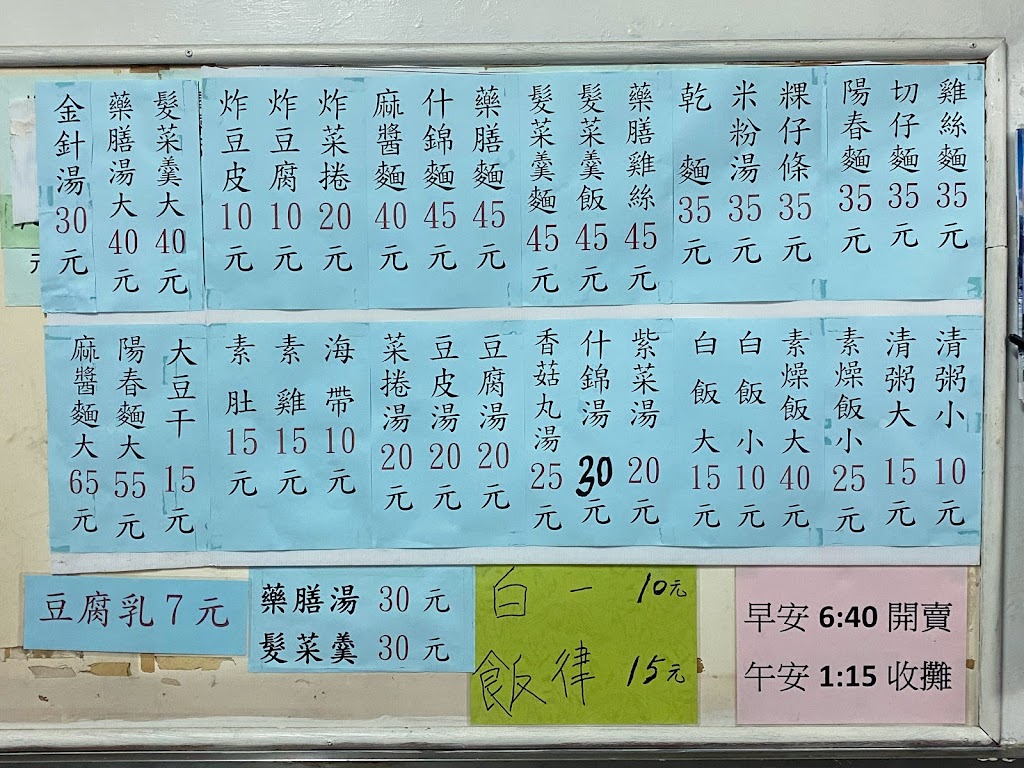 雞絲麵35元
切仔麵35元
陽春麵35元
粿仔條35元
米粉湯35元
乾麵35元
藥膳雞絲45元
髮菜羹飯45元
髮菜羹麵45元
藥膳麵45元
什錦麵45元
麻醬麵40元
炸菜捲20元
炸豆腐10元
炸豆皮10元
髮菜羹大40元
藥膳湯大40元
金針湯30元
元
清粥小10元
清粥大15元
素燥飯小25元
素燥飯大40元
白飯小10元
白飯大15元
紫菜湯20元
什錦湯30元
香菇丸湯25元
豆腐湯20元
豆皮湯20元
菜捲湯20元
海帶10元
素雞15元
素肚15元
大豆干15元
陽春麵大55元
麻醬麵大65元
豆腐乳7元
藥膳湯 30 元
髮菜羹 30 元
白一 10元
飯律 15元
早安 6:40 開賣
午安 1:15 收攤